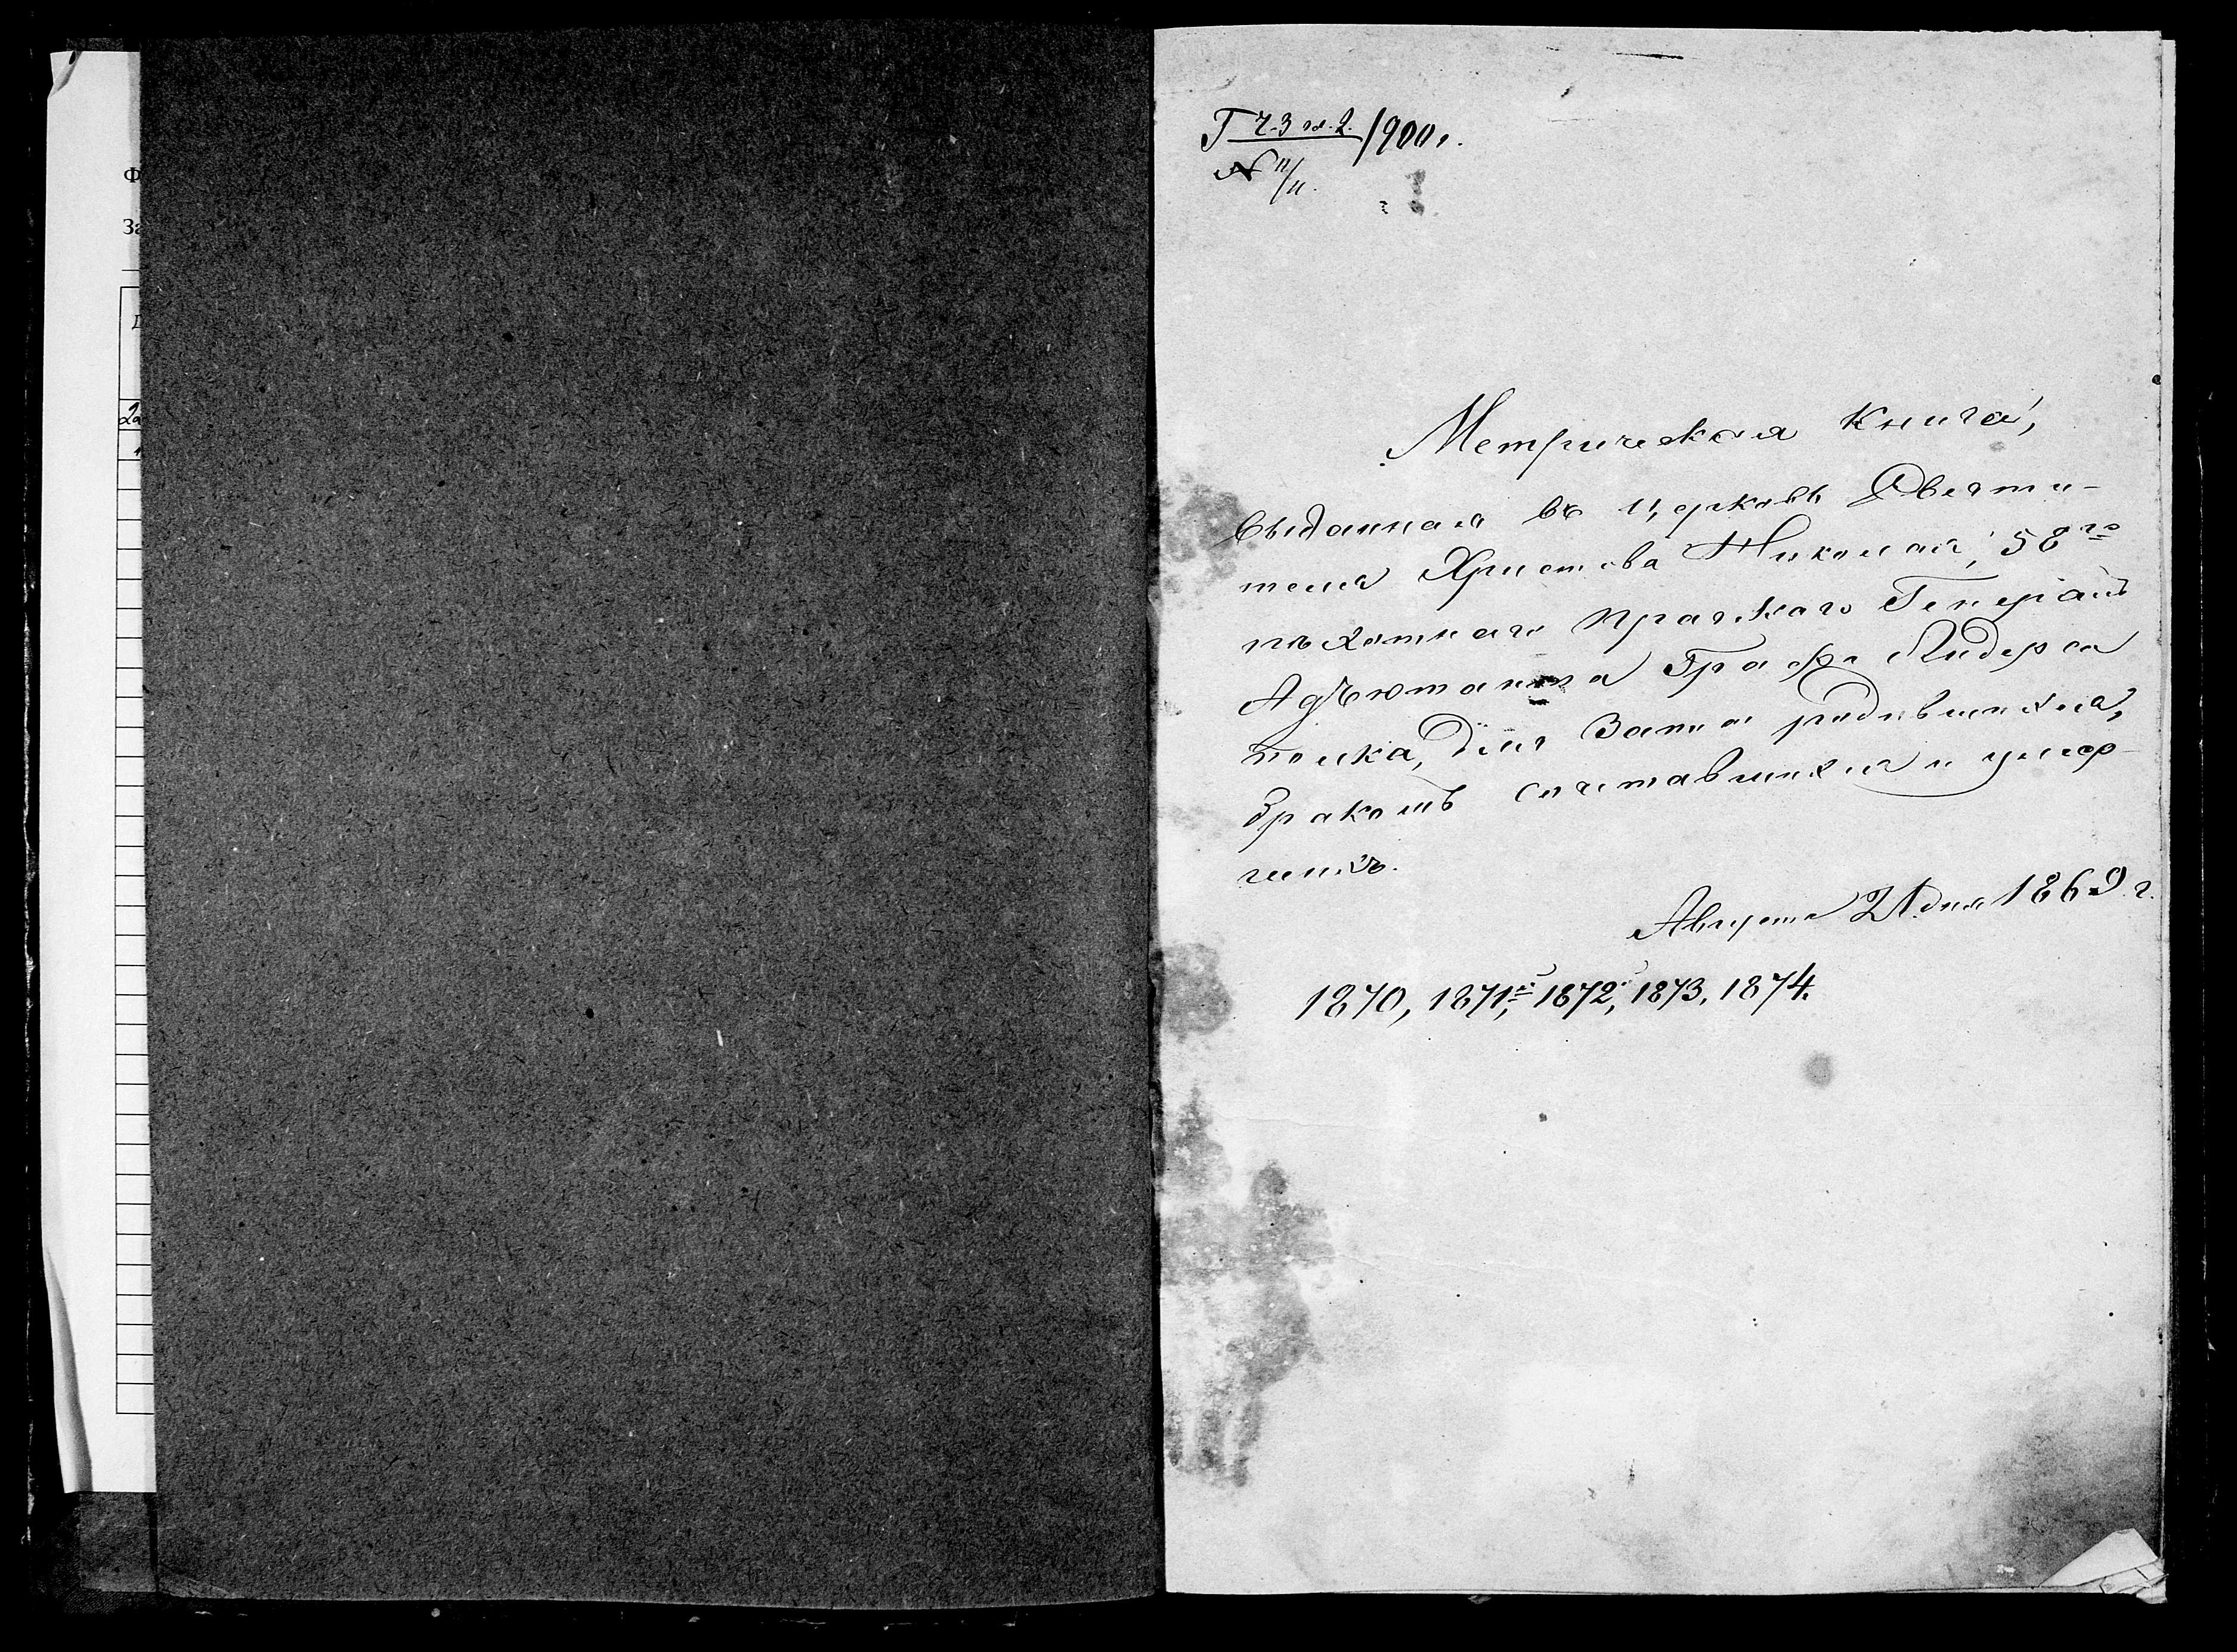 Ф
За
Д
22
Г ч.3 ол.2. 1900 г.
№ 11/11.
Метрическая книга,
выданная въ церковь Святи-
теля Христова Николая, 58го
пѣхотнаго Прагскаго Генералъ
Адъютанта Графа Лидерса
полка, для записи родившихся,
бракомъ сочетавшихся и умер-
шихъ.
Августа 21 дня 1869 г.
1870, 1871, 1872, 1873, 1874.